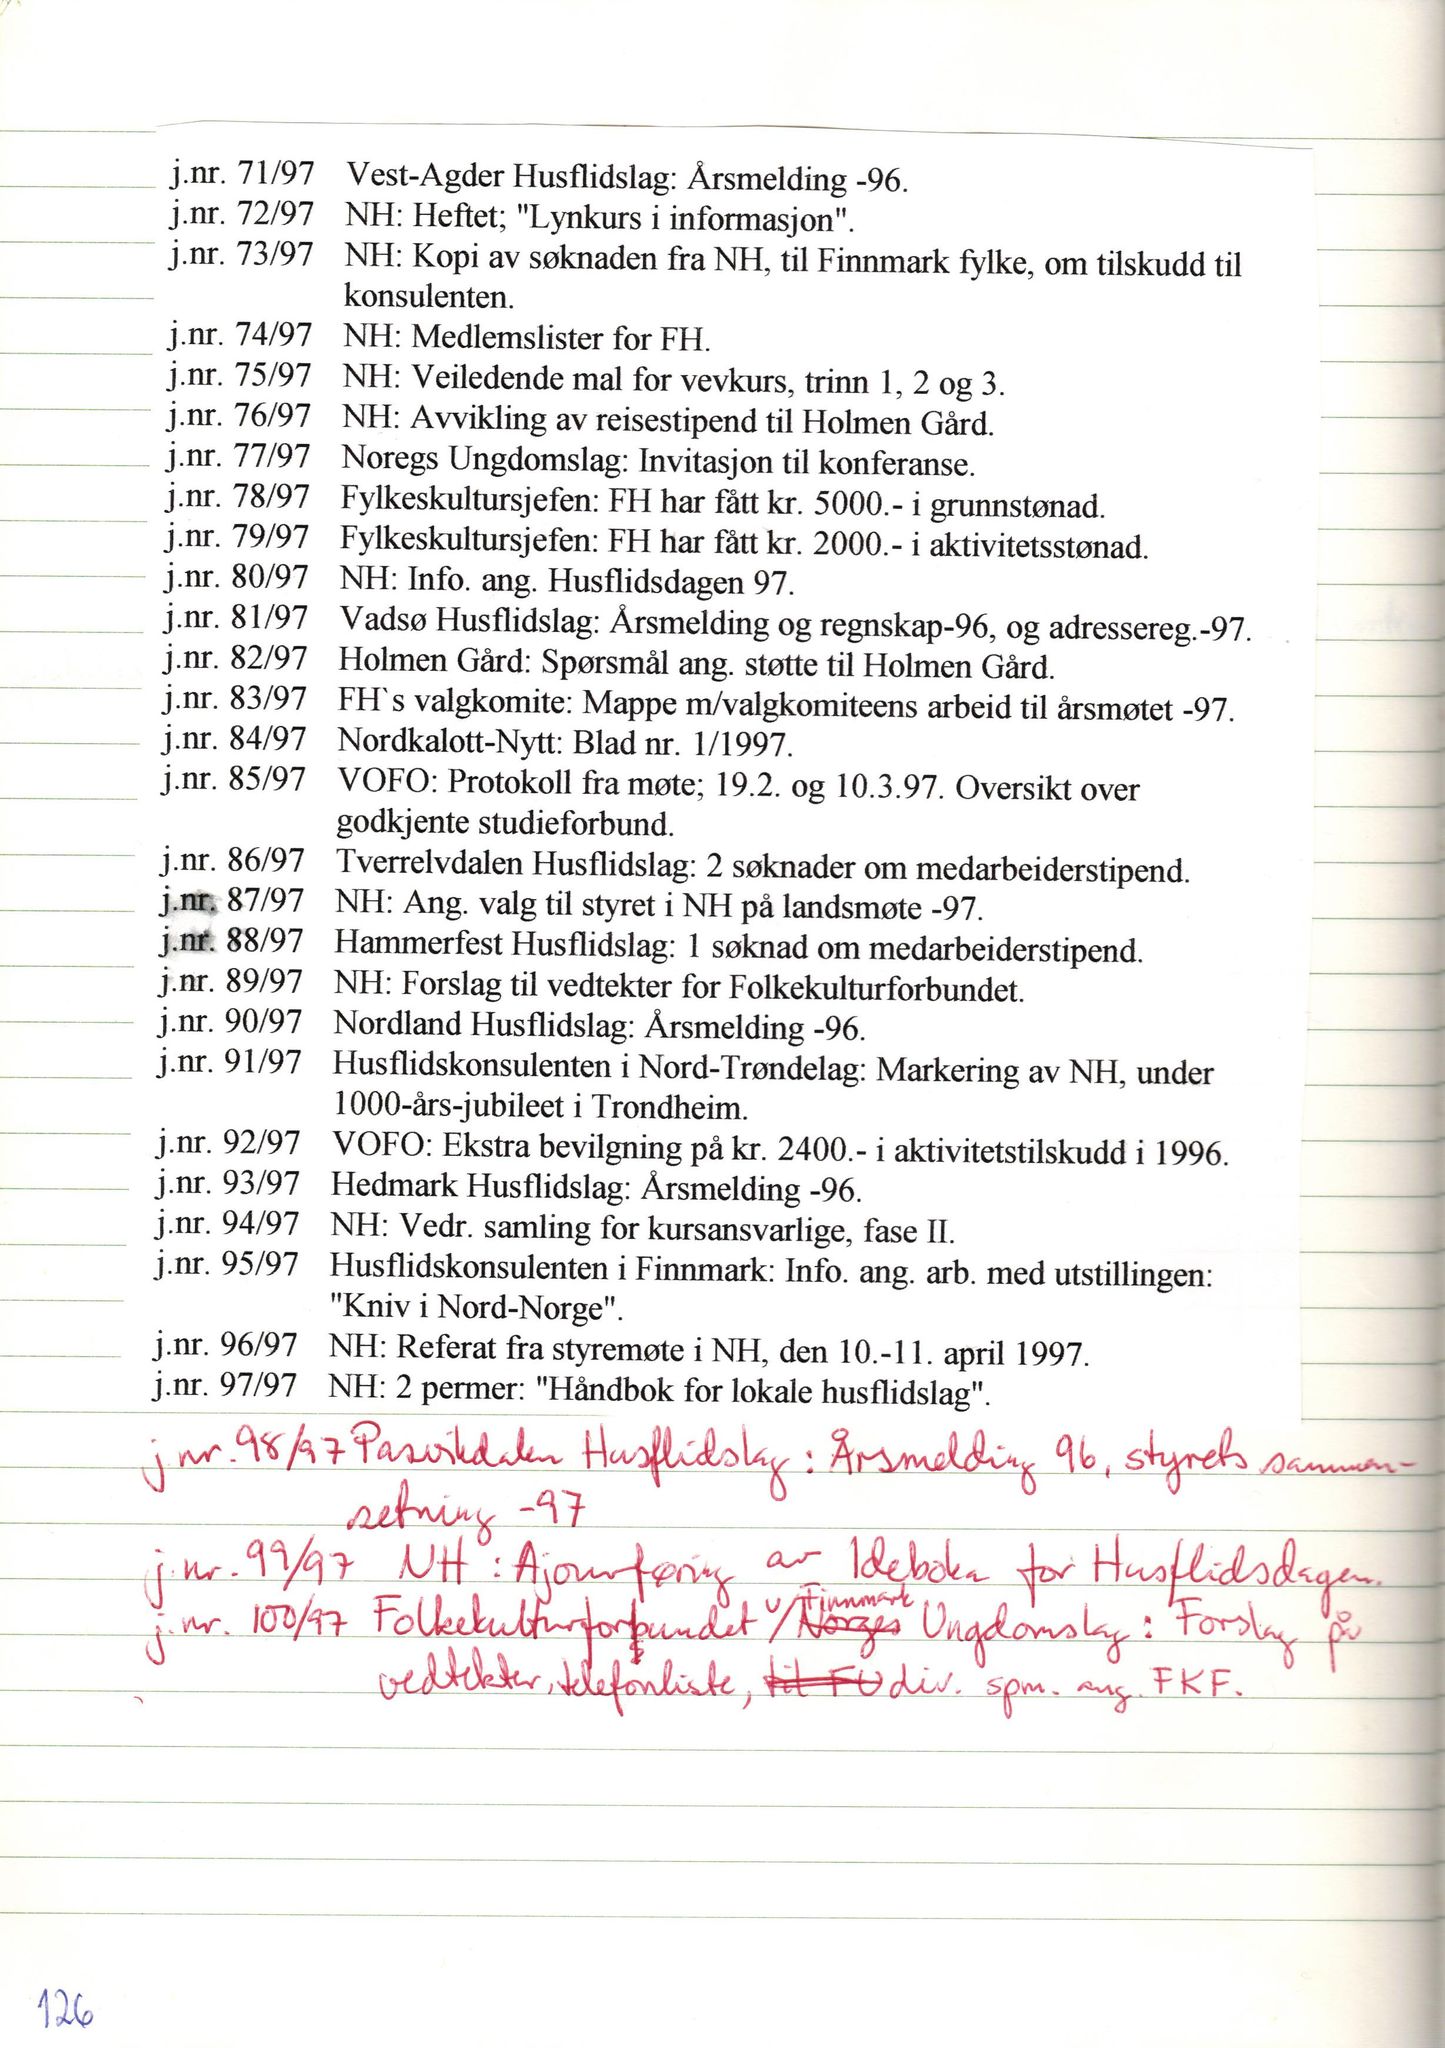 j.nr. 71/97 Vest-Agder Husflidslag: Årsmelding -96.
j.nr. 72/97 NH: Heftet; "Lynkurs i informasjon".
j.nr. 73/97 NH: Kopi av søknaden fra NH, til Finnmark fylke, om tilskudd til
konsulenten.
j.nr. 74/97 NH: Medlemslister for FH.
j.nr. 75/97 NH: Veiledende mal for vevkurs, trinn 1, 2 og 3.
j.nr. 76/97 NH: Avvikling av reisestipend til Holmen Gård.
j.nr. 77/97 Noregs Ungdomslag: Invitasjon til konferanse.
j.nr. 78/97 Fylkeskultursjefen: FH har fått kr. 5000.- i grunnstønad.
j.nr. 79/97 Fylkeskultursjefen: FH har fått kr. 2000.- i aktivitetsstønad.
j.nr. 80/97 NH: Info. ang. Husflidsdagen 97.
j.nr. 81/97 Vadsø Husflidslag: Årsmelding og regnskap-96, og adressereg.-97.
j.nr. 82/97 Holmen Gård: Spørsmål ang. støtte til Holmen Gård.
j.nr. 83/97 FH`s valgkomite: Mappe m/valgkomiteens arbeid til årsmøtet -97.
j.nr. 84/97 Nordkalott-Nytt: Blad nr. 1/1997.
j.nr. 85/97 VOFO: Protokoll fra møte; 19.2. og 10.3.97. Oversikt over
godkjente studieforbund.
j.nr. 86/97 Tverrelvdalen Husflidslag: 2 søknader om medarbeiderstipend.
j.nr. 87/97 NH: Ang. valg til styret i NH på landsmøte -97.
j.nr. 88/97 Hammerfest Husflidslag: 1 søknad om medarbeiderstipend.
j.nr. 89/97 NH: Forslag til vedtekter for Folkekulturforbundet.
j.nr. 90/97 Nordland Husflidslag: Årsmelding -96.
j.nr. 91/97 Husflidskonsulenten i Nord-Trøndelag: Markering av NH, under
1000-års-jubileet i Trondheim.
j.nr. 92/97 VOFO: Ekstra bevilgning på kr. 2400.- i aktivitetstilskudd i 1996.
j.nr. 93/97 Hedmark Husflidslag: Årsmelding -96.
j.nr. 94/97 NH: Vedr. samling for kursansvarlige, fase II.
j.nr. 95/97 Husflidskonsulenten i Finnmark: Info. ang. arb. med utstillingen:
"Kniv i Nord-Norge".
j.nr. 96/97 NH: Referat fra styremøte i NH, den 10.-11. april 1997.
j.nr. 97/97 NH: 2 permer: "Håndbok for lokale husflidslag".
j.nr. 98/97 Pasvikdalen Husflidslag: Årsmelding 96, styrets sammen-
setning -97
j.nr. 99/97 NH: Ajourføring av Ideboka for Husflidsdagen.
j.nr. 100/97 Folkekulturforbundet v/Finnmark Norges Ungdomslag: Forslag på
vedtekter, telefonliste, til FU div. spm. ang. FKF.
126